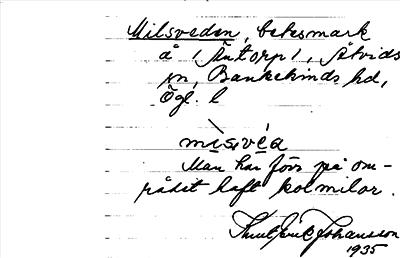 Milsveden, betesmark
å (Äntorp), Åtvids
sn, Bankekinds hd,
Ögl. l
mìsvéa
Man har förr på om-
rådet haft kolmilor.
Knut Erik Johansson
1935